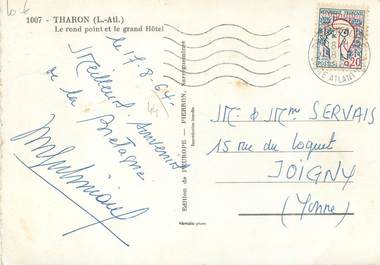 1007 - THARON (L.-Atl.)
Le rond point et le grand Hôtel
le 17.8.64.
Meilleurs souvenirs
de la Bretagne.
Edition de l'EUROPE - PIERRON, Sarreguemines
Reproduction interdite
Véritable photo
REPUBLIQUE FRANÇAISE
POSTES
0,20
LOIRE ATLANTIQUE
M. & Mme SERVAIS
15 rue du loquet
JOIGNY
(Yonne)